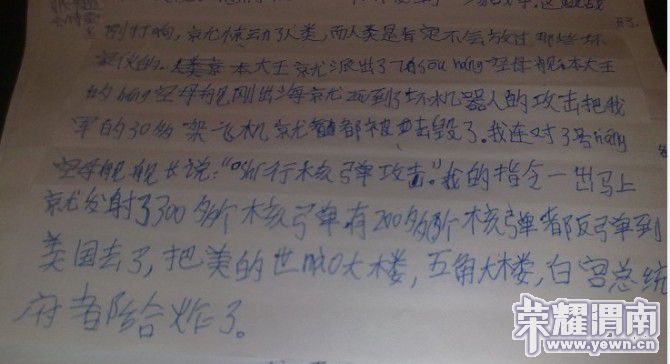 刚打响,京尤惊动了人类,而人类是肯定不会放过那些坏
家伙的。本大王京尤派出了1号hang空母舰。本大王
的háng空母舰刚出海京尤到了坏机器人的攻击把我
军的30多架飞机京尤都被击毁了。我连对了3号háng
空母舰舰长说:“执行核弹攻击”。我的指令一出马上
京尤发射了300多个核弹有200多个核弹都反弹到
美国去了,把美的世贸大楼,五角大楼,白宫总统
府都给炸了。
荣耀渭南
www.yewn.cn